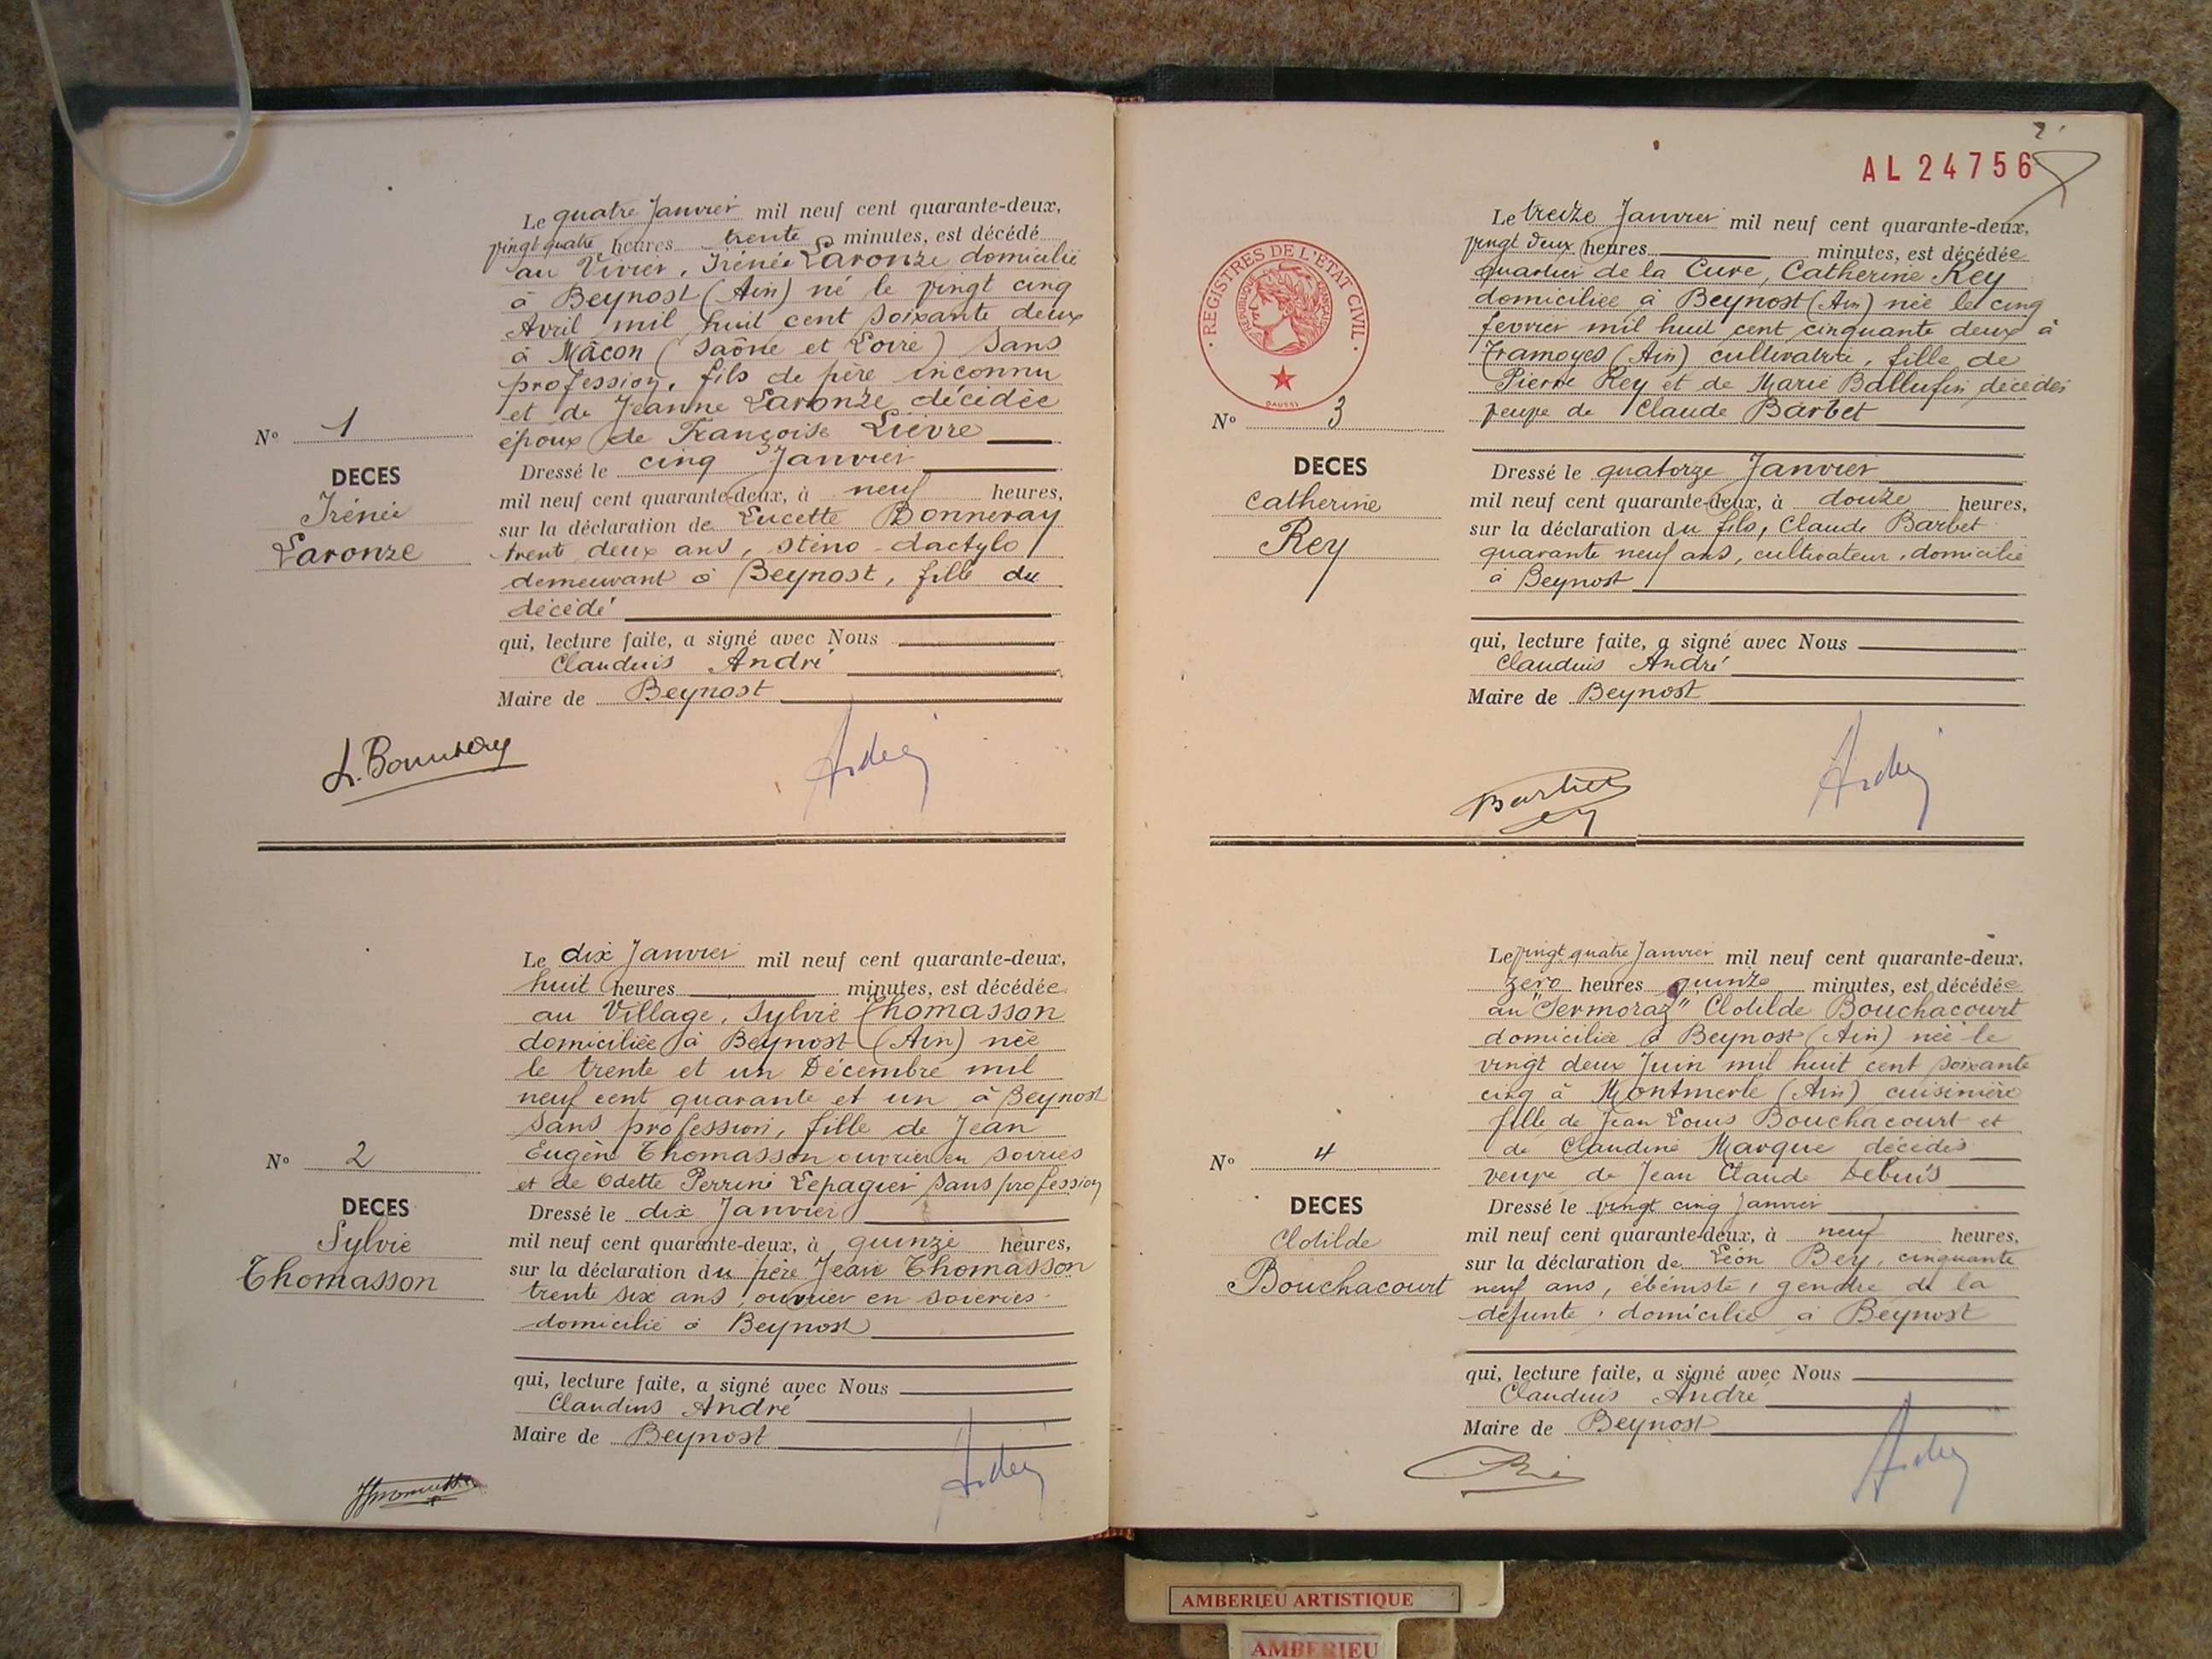 Le quatre Janvier mil neuf cent quarante-deux,
vingt quatre heures trente minutes, est décédé
au Vivier, Irénée Laronze domicilié
à Beynost (Ain) né le vingt cinq
Avril mil huit cent soixante deux
à Mâcon (Saône et Loire) sans
profession, fils de père inconnu
et de Jeanne Laronze décédée
époux de Françoise Lievre
N° 1
DECES
Irénée
Laronze
Dressé le cinq Janvier
mil neuf cent quarante-deux, à neuf heures,
sur la déclaration de Lucette Bonneray
trente deux ans, sténo-dactylo
demeurant à Beynost, fille du
décédé
qui, lecture faite, a signé avec Nous
Claudius André
Maire de Beynost
L. Bonneray
André
Le dix Janvier mil neuf cent quarante-deux,
huit heures minutes, est décédée
au Village, Sylvie Thomasson
domiciliée à Beynost (Ain) née
le trente et un Décembre mil
neuf cent quarante et un à Beynost
sans profession, fille de Jean
Eugène Thomasson ouvrier en soiries
et de Odette Perrine Lepagier sans profession
N° 2
DECES
Sylvie
Thomasson
Dressé le dix Janvier
mil neuf cent quarante-deux, à quinze heures,
sur la déclaration du père Jean Thomasson
trente six ans, ouvrier en soieries
domicilié à Beynost
qui, lecture faite, a signé avec Nous
Claudius André
Maire de Beynost
André
AL 24756
REGISTRES DE L'ETAT CIVIL
REPUBLIQUE FRANÇAISE
DAUSSI
Le treize Janvier mil neuf cent quarante-deux,
vingt deux heures minutes, est décédée
quartier de la Cure, Catherine Rey
domiciliée à Beynost (Ain) née le cinq
fevrier mil huit cent cinquante deux à
Tramoyes (Ain) cultivatrice, fille de
Pierre Rey et de Marie Ballufin décédés
veuve de Claude Barbet
N° 3
DECES
Catherine
Rey
Dressé le quatorze Janvier
mil neuf cent quarante-deux, à douze heures,
sur la déclaration du fils, Claude Barbet
quarante neuf ans, cultivateur, domicilié
à Beynost
qui, lecture faite, a signé avec Nous
Claudius André
Maire de Beynost
Barbet
André
Le vingt quatre Janvier mil neuf cent quarante-deux,
zéro heures quinze minutes, est décédée
au "Sermoraz" Clotilde Bouchacourt
domiciliée à Beynost (Ain) née le
vingt deux Juin mil huit cent soixante
cinq à Montmerle (Ain) cuisinière
fille de Jean Louis Bouchacourt et
de Claudine Marque décédés
veuve de Jean Claude Debuis
N° 4
DECES
Clotilde
Bouchacourt
Dressé le vingt cinq Janvier
mil neuf cent quarante-deux, à neuf heures,
sur la déclaration de Léon Bey, cinquante
neuf ans, ébéniste, gendre de la
défunte, domicilié à Beynost
qui, lecture faite, a signé avec Nous
Claudius André
Maire de Beynost
André
AMBERIEU ARTISTIQUE
AMBERIEU